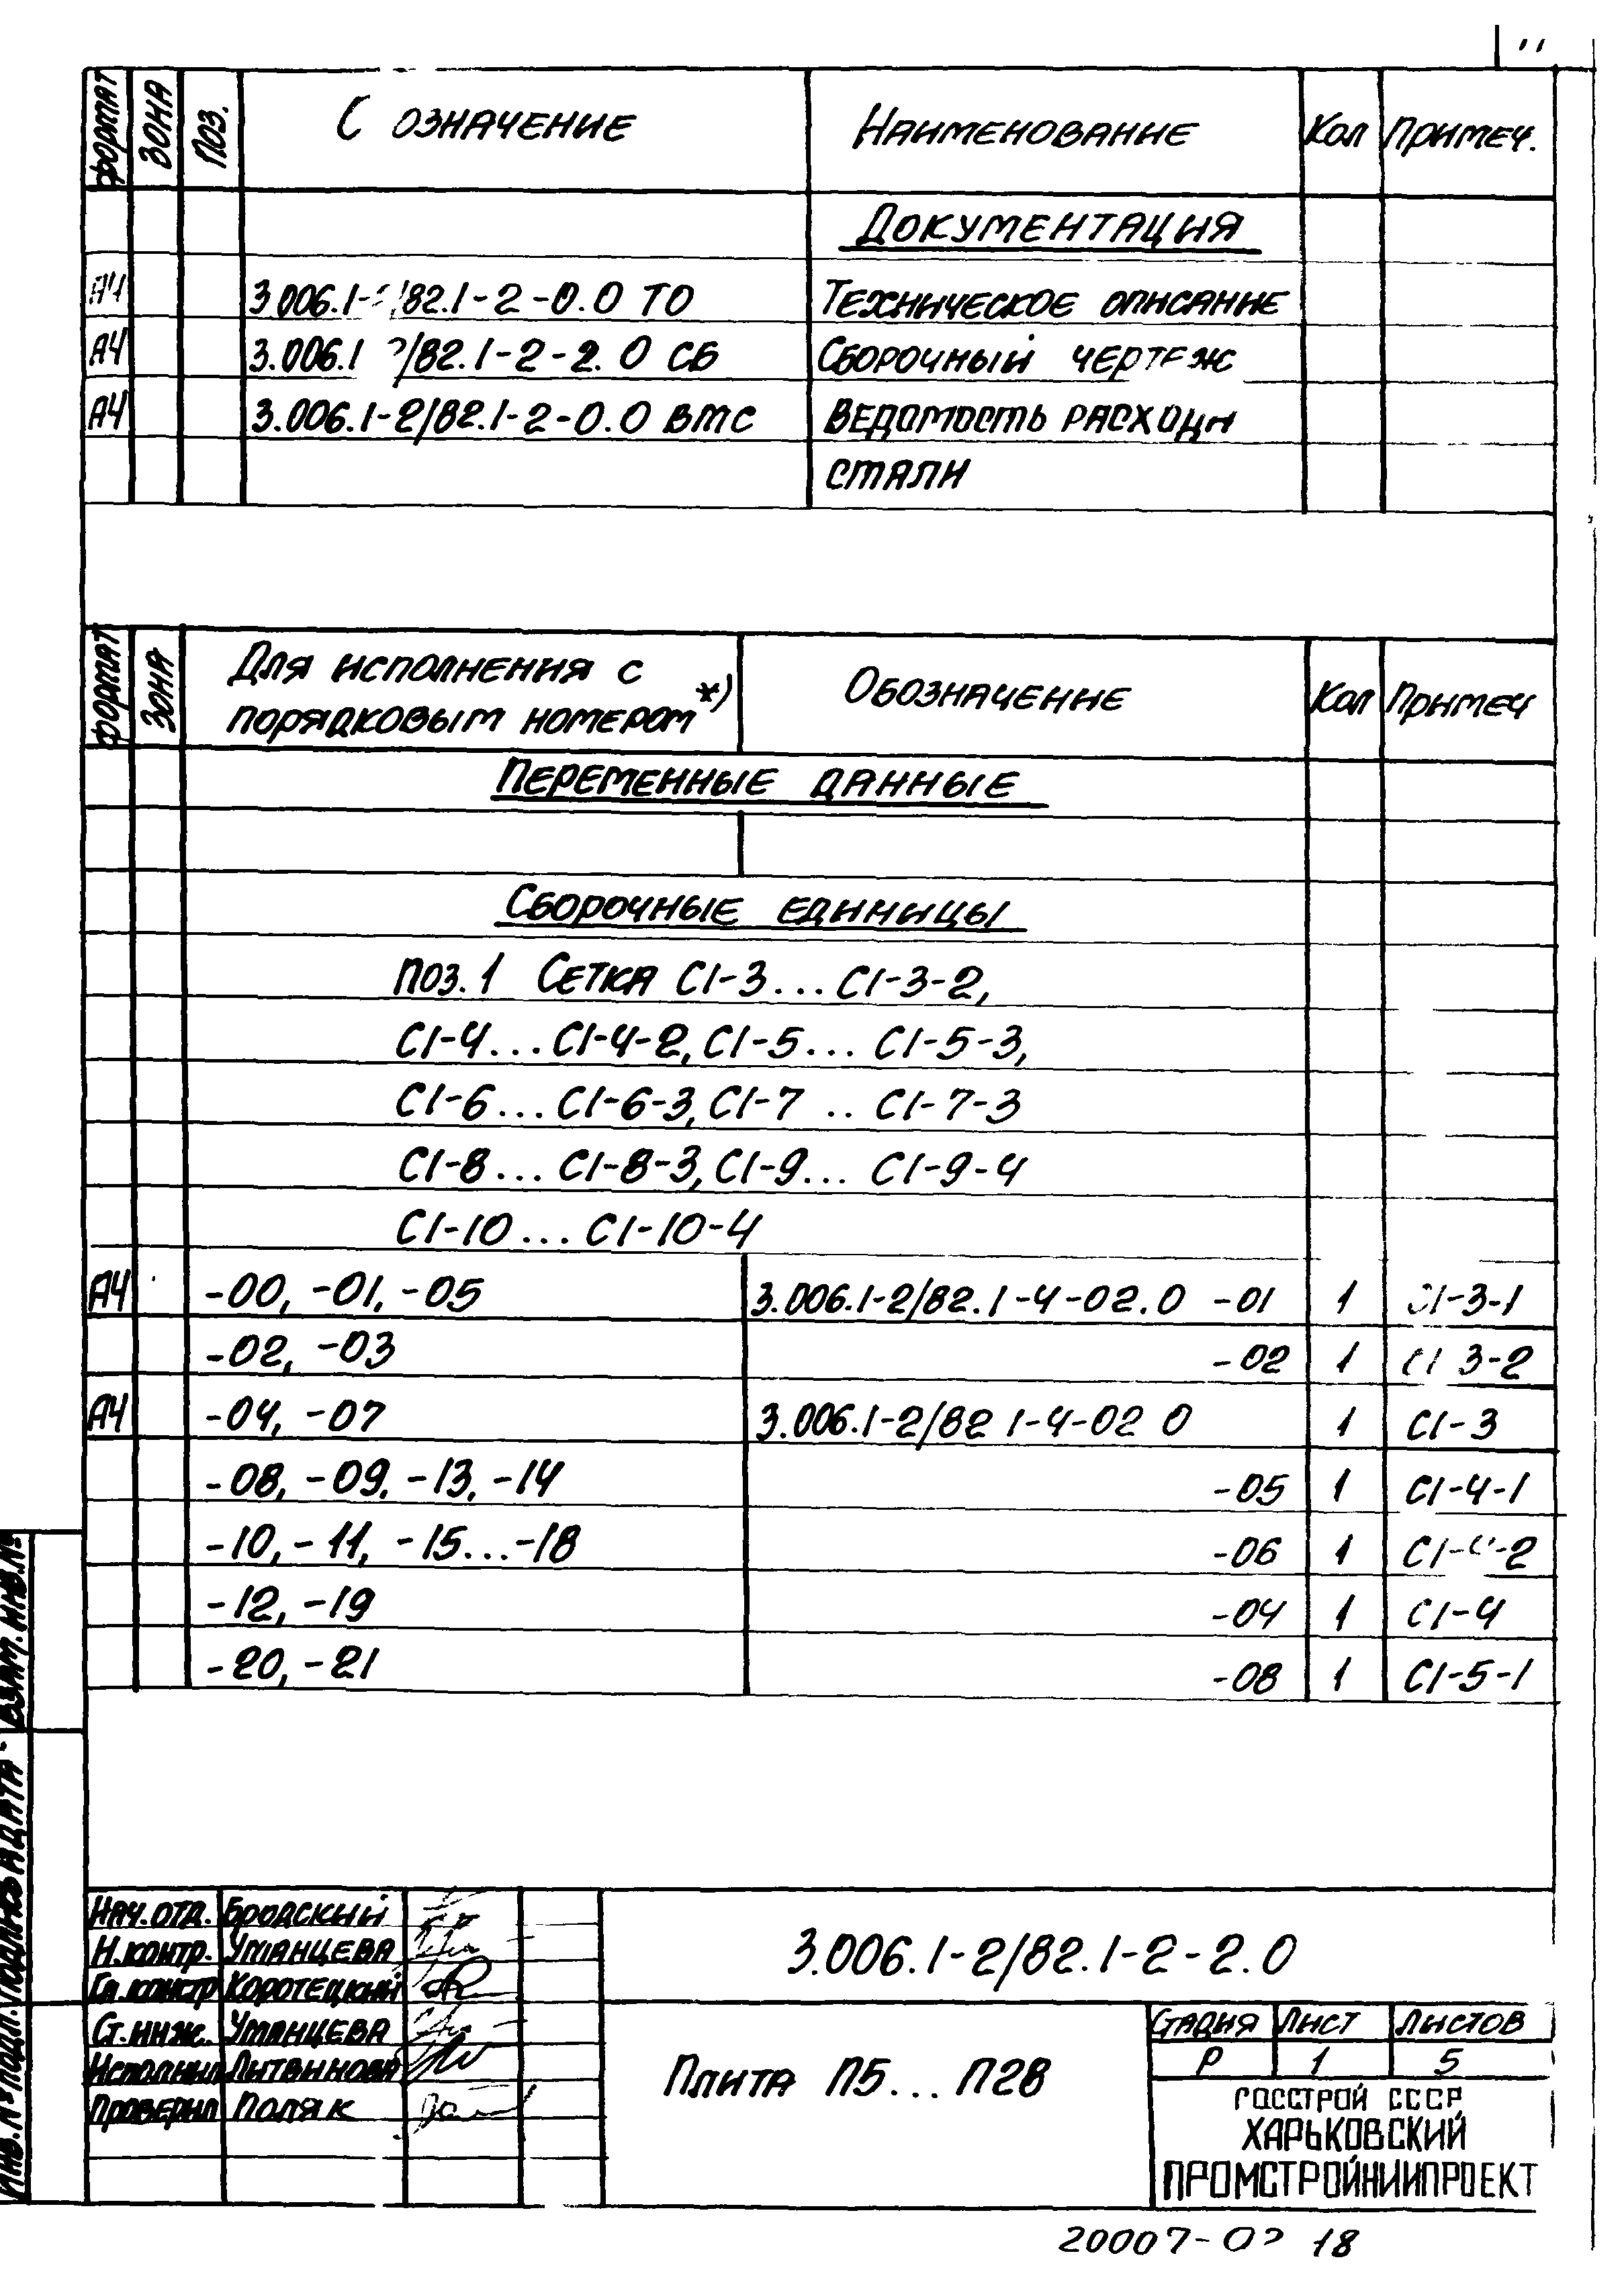 ФОРМАТ ЗОНА ПОЗ. ОЗНАЧЕНИЕ НАИМЕНОВАНИЕ Кол ПРИМЕЧ.
ДОКУМЕНТАЦИЯ
А4 3.006.1-2/82.1-2-0.0 ТО ТЕХНИЧЕСКОЕ ОПИСАНИЕ
А4 3.006.1 2/82.1-2-2.0 СБ СБОРОЧНЫЙ ЧЕРТЕЖ
А4 3.006.1-2/82.1-2-0.0 ВМС ВЕДОМОСТЬ РАСХОДА
СТАЛИ
ФОРМАТ ЗОНА ДЛЯ ИСПОЛНЕНИЯ С ПОРЯДКОВЫМ НОМЕРОМ *) ОБОЗНАЧЕНИЕ Кол ПРИМЕЧ
ПЕРЕМЕННЫЕ ДАННЫЕ
СБОРОЧНЫЕ ЕДИНИЦЫ
ПОЗ. 1 СЕТКА С1-3...С1-3-2,
С1-4...С1-4-2, С1-5... С1-5-3,
С1-6...С1-6-3, С1-7 .. С1-7-3
С1-8...С1-8-3, С1-9... С1-9-4
С1-10...С1-10-4
А4 -00, -01, -05 3.006.1-2/82.1-4-02.0 -01 1 С1-3-1
-02, -03 -02 1 С1 3-2
А4 -04, -07 3.006.1-2/82 1-4-02 0 1 С1-3
-08, -09, -13, -14 -05 1 С1-4-1
-10, -11, -15...-18 -06 1 С1-4-2
-12, -19 -04 1 С1-4
-20, -21 -08 1 С1-5-1
ВЗАМ. ИНВ. №
ПОДПИСЬ И ДАТА
ИНВ. № ПОДЛ.
НАЧ. ОТД. БРОДСКИЙ
Н. КОНТР. УМАНЦЕВА
ГЛ. КОНСТР КОРОТЕЦКИЙ
СТ. ИНЖ. УМАНЦЕВА
ИСПОЛНИЛ ЛИТВИНОВА
ПРОВЕРИЛ ПОЛЯК
3.006.1-2/82.1-2-2.0
ПЛИТА П5...П28
СТАДИЯ ЛИСТ ЛИСТОВ
Р 1 5
ГОССТРОЙ СССР
ХАРЬКОВСКИЙ
ПРОМСТРОЙНИИПРОЕКТ
20007-02 18